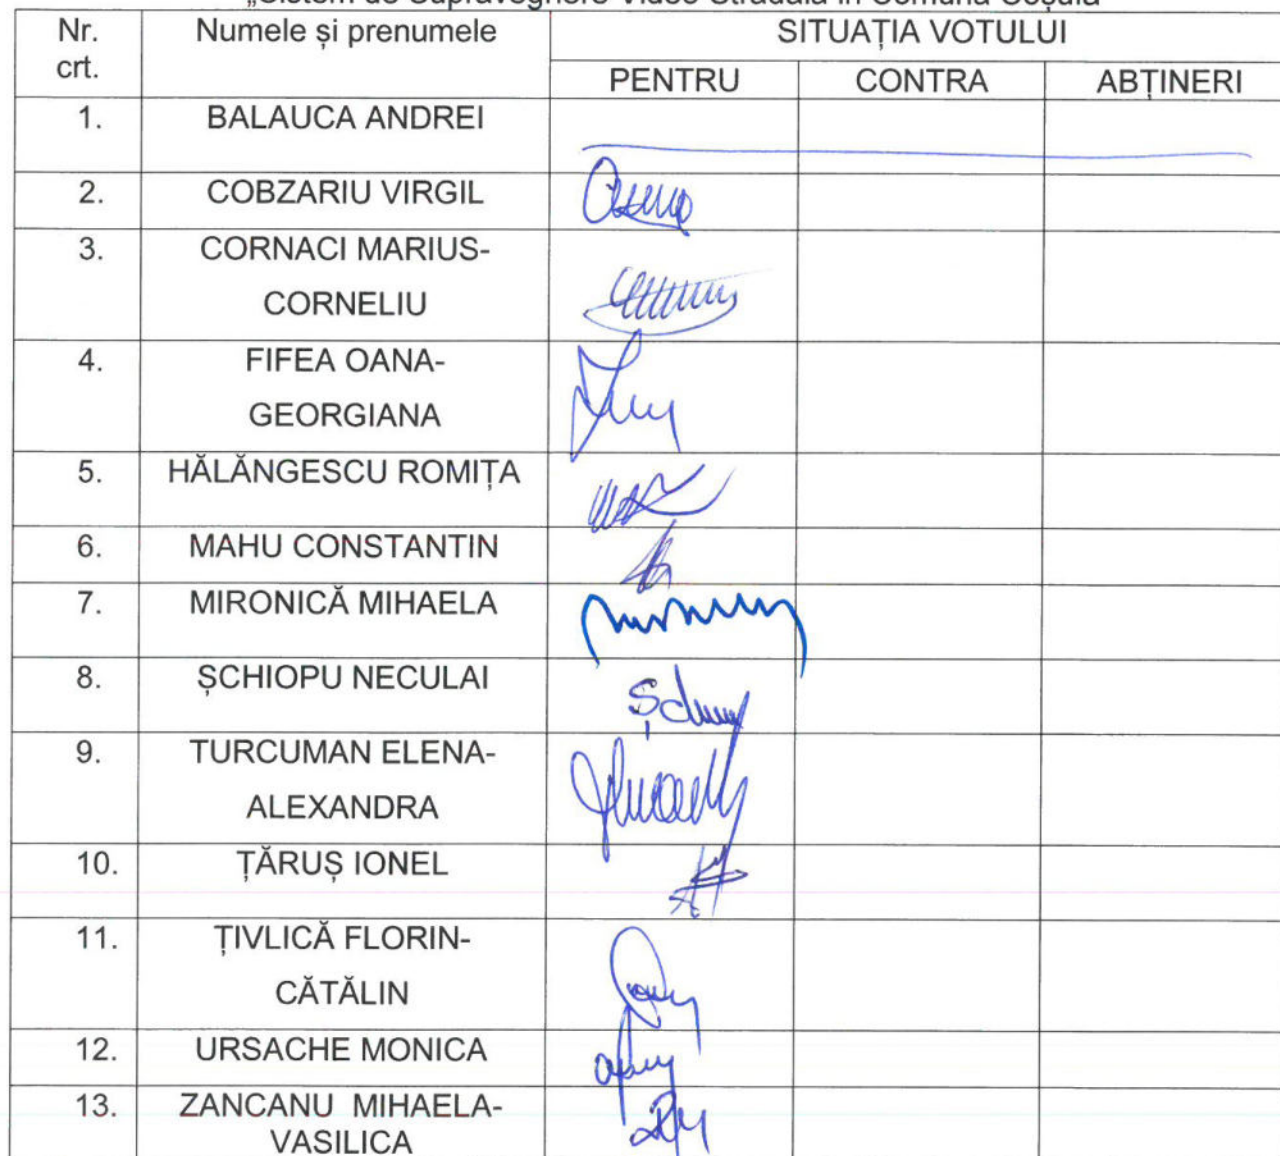 „Sistem de Supraveghere Video Stradală în Comuna Coșula”
Nr. crt. Numele și prenumele SITUAȚIA VOTULUI
PENTRU CONTRA ABȚINERI
1. BALAUCA ANDREI
2. COBZARIU VIRGIL
3. CORNACI MARIUS-
CORNELIU
4. FIFEA OANA-
GEORGIANA
5. HĂLĂNGESCU ROMIȚA
6. MAHU CONSTANTIN
7. MIRONICĂ MIHAELA
8. ȘCHIOPU NECULAI
9. TURCUMAN ELENA-
ALEXANDRA
10. ȚĂRUȘ IONEL
11. ȚIVLICĂ FLORIN-
CĂTĂLIN
12. URSACHE MONICA
13. ZANCANU MIHAELA-
VASILICA